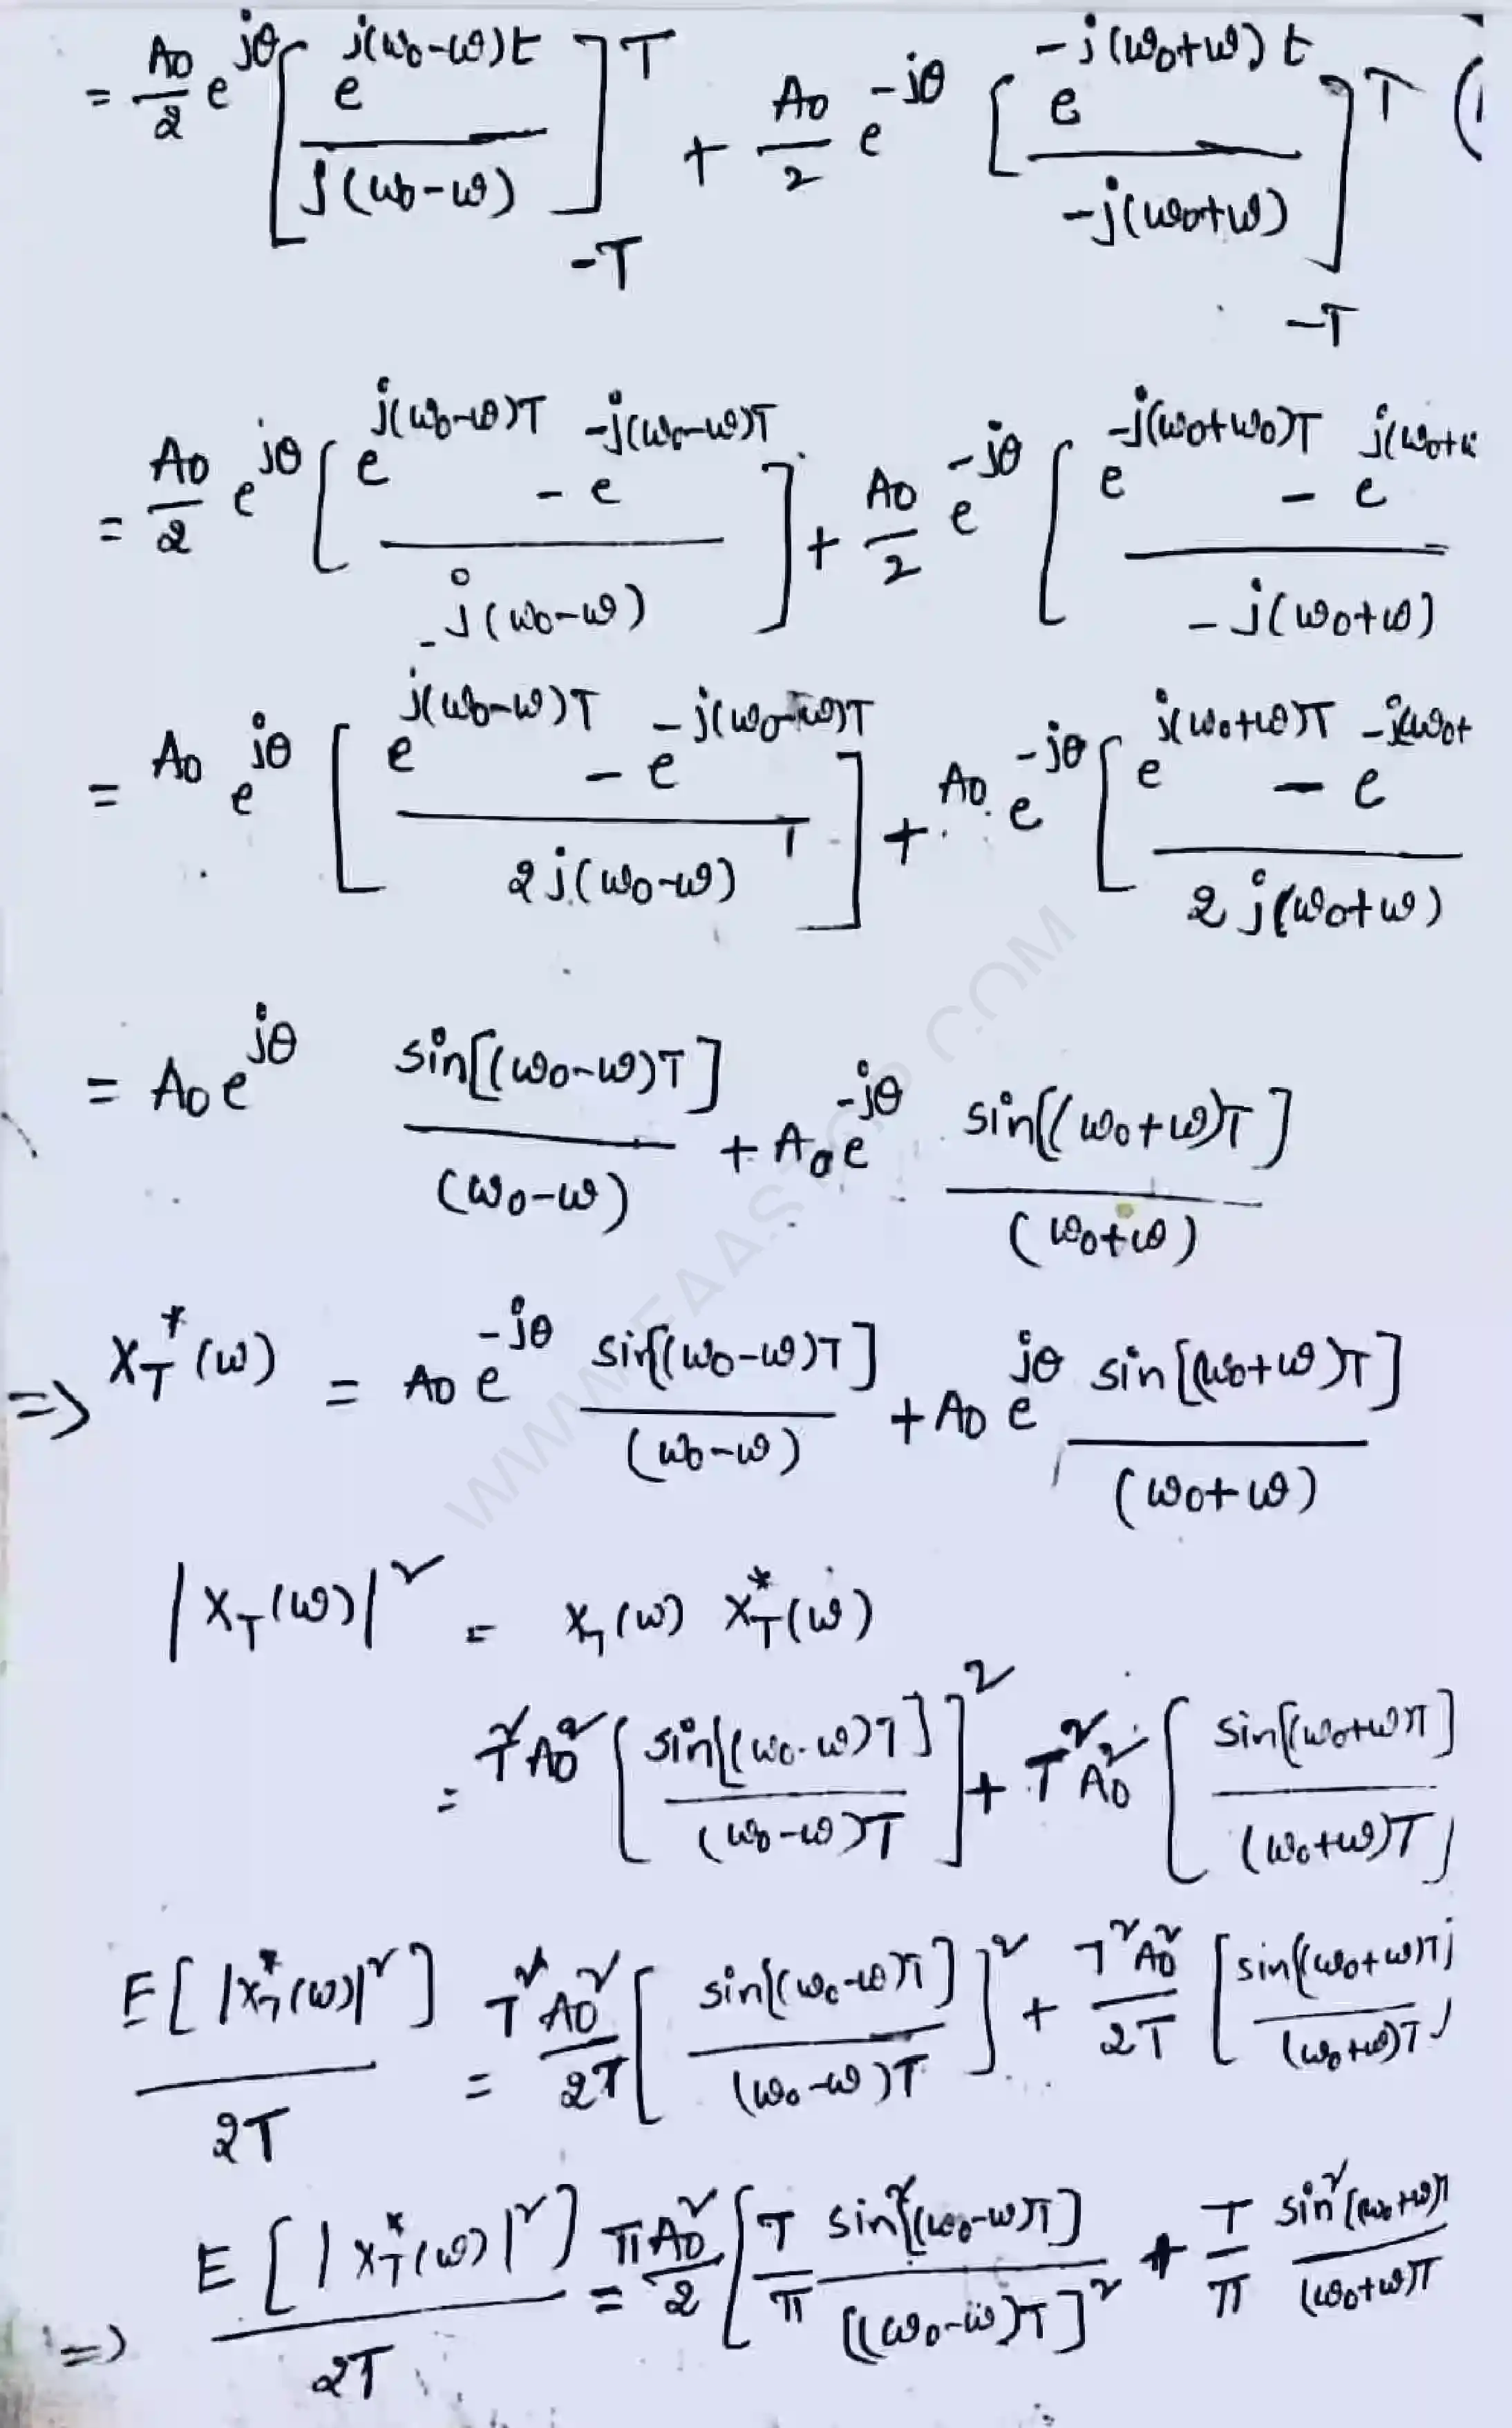 = A0/2 e^jθ [ e^j(ω0-ω)t / j(ω0-ω) ]^T _-T + A0/2 e^-jθ [ e^-j(ω0+ω)t / -j(ω0+ω) ]^T _-T (
= A0/2 e^jθ [ e^j(ω0-ω)T - e^-j(ω0-ω)T / j(ω0-ω) ] + A0/2 e^-jθ [ e^-j(ω0+ω0)T - e^j(ω0+ / -j(ω0+ω)
= A0 e^jθ [ e^j(ω0-ω)T - e^-j(ω0-ω)T / 2j(ω0-ω) ] + A0 e^-jθ [ e^j(ω0+ω)T - e^-j(ω0+ / 2j(ω0+ω)
= A0 e^jθ sin[(ω0-ω)T] / (ω0-ω) + A0 e^-jθ sin[(ω0+ω)T] / (ω0+ω)
=> X_T^*(ω) = A0 e^-jθ sin[(ω0-ω)T] / (ω0-ω) + A0 e^jθ sin[(ω0+ω)T] / (ω0+ω)
|X_T(ω)|^2 = X_T(ω) X_T^*(ω)
= T^2 A0^2 [ sin[(ω0-ω)T] / (ω0-ω)T ]^2 + T^2 A0^2 [ sin[(ω0+ω)T] / (ω0+ω)T ]
E[ |X_T^*(ω)|^2 ] / 2T = T^2 A0^2 / 2T [ sin[(ω0-ω)T] / (ω0-ω)T ]^2 + T^2 A0^2 / 2T [ sin[(ω0+ω)T] / (ω0+ω)T ]
=> E[ |X_T^*(ω)|^2 ] / 2T = πA0^2 / 2 [ T/π sin^2[(ω0-ω)T] / [(ω0-ω)T]^2 + T/π sin^2[(ω0+ω)T / (ω0+ω)T